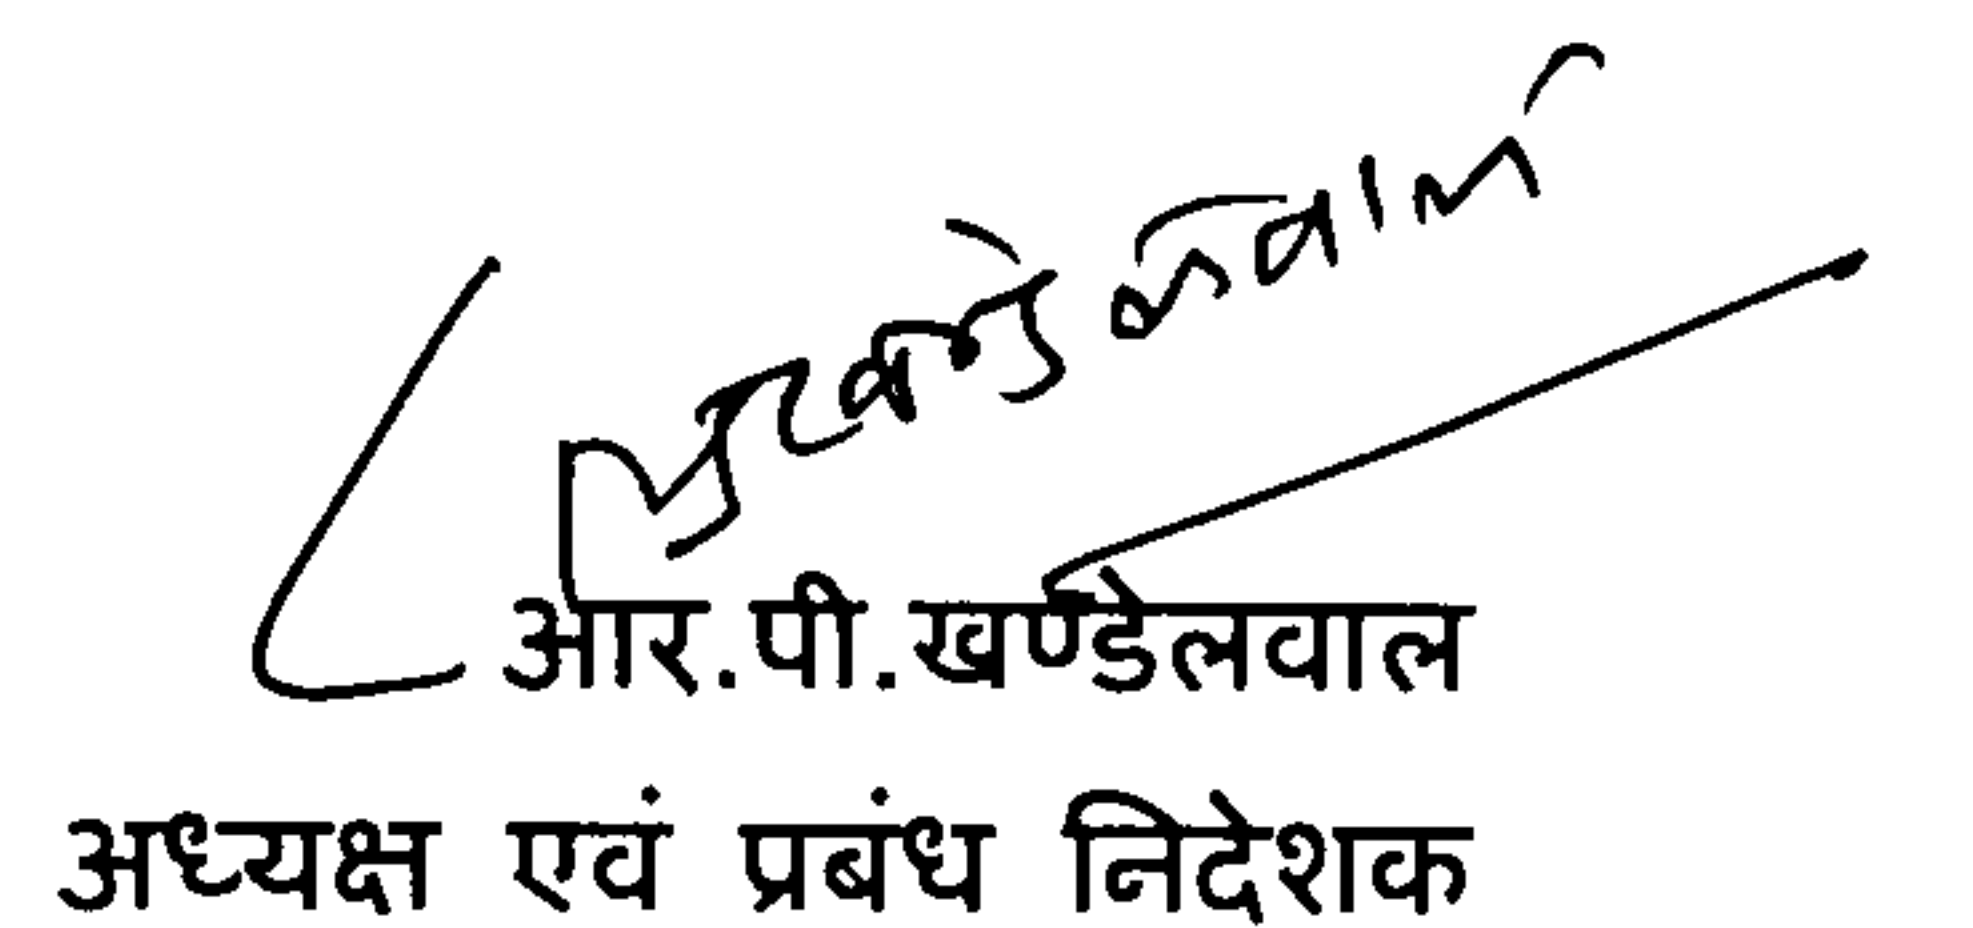 आर.पी.खण्डेलवाल
अध्यक्ष एवं प्रबंध निदेशक